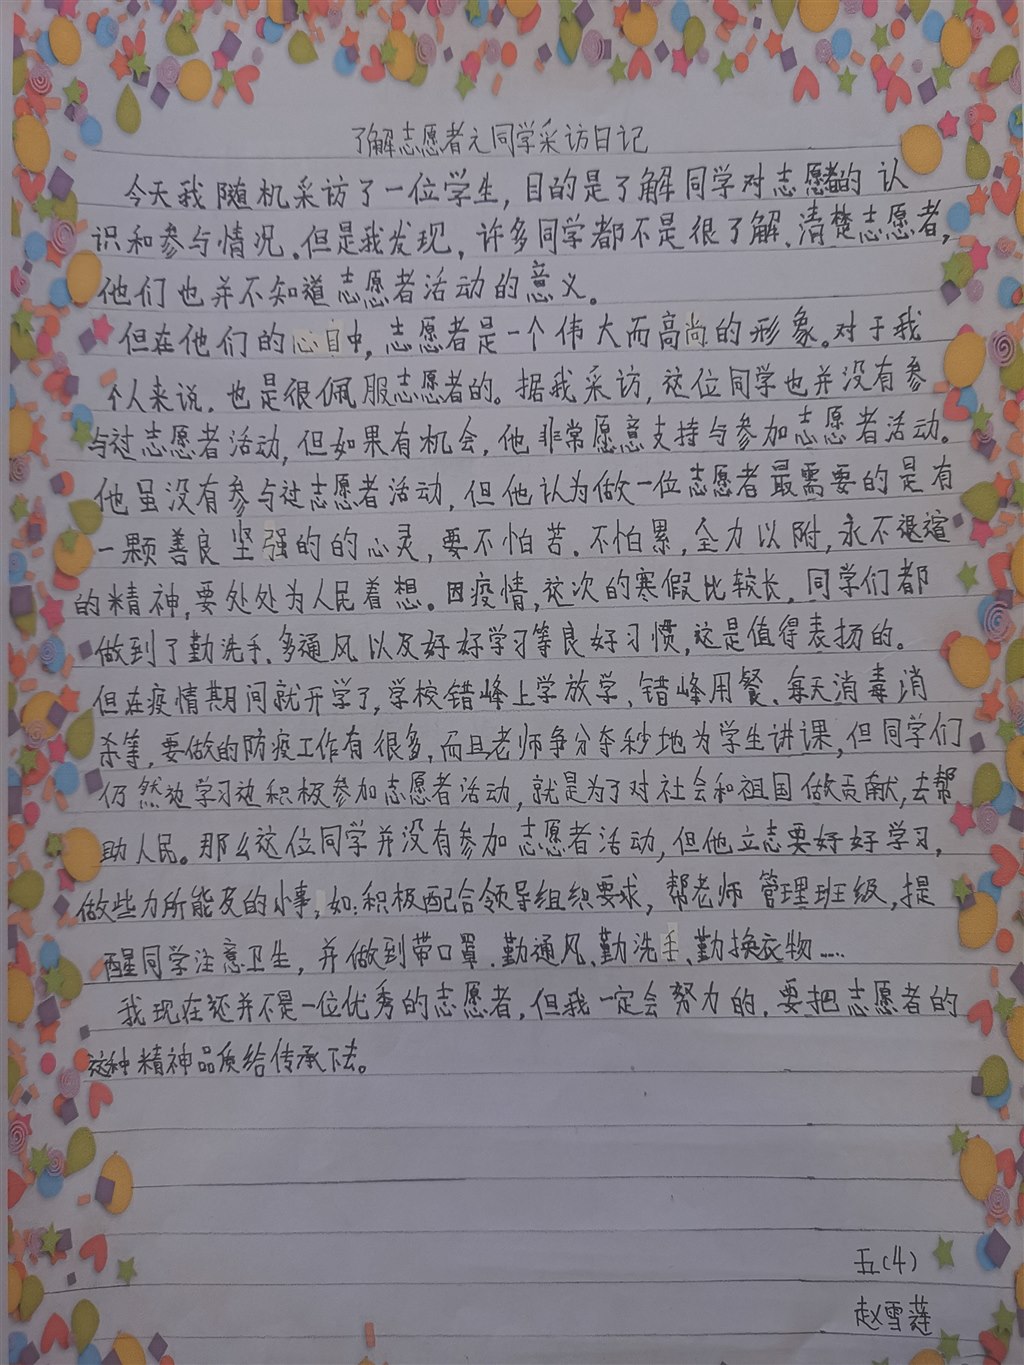 了解志愿者之同学采访日记
今天我随机采访了一位学生，目的是了解同学对志愿者的认
识和参与情况。但是我发现，许多同学都不是很了解、清楚志愿者，
他们也并不知道志愿者活动的意义。
但在他们的心目中，志愿者是一个伟大而高尚的形象。对于我
个人来说，也是很佩服志愿者的。据我采访，这位同学也并没有参
与过志愿者活动，但如果有机会，他非常愿意支持与参加志愿者活动。
他虽没有参与过志愿者活动，但他认为做一位志愿者最需要的是有
一颗善良坚强的的心灵，要不怕苦、不怕累，全力以附，永不退
的精神，要处处为人民着想。因疫情，这次的寒假比较长，同学们都
做到了勤洗手、多通风以及好好学习等良好习惯，这是值得表扬的。
但在疫情期间就开学了，学校错峰上学放学、错峰用餐、每天消毒消
杀等，要做的防疫工作有很多，而且老师争分夺秒地为学生讲课，但同学们
仍然边学习边积极参加志愿者活动，就是为了对社会和祖国做贡献，去帮
助人民。那么这位同学并没有参加志愿者活动，但他立志要好好学习，
做些力所能及的小事，如：积极配合领导组织要求，帮老师管理班级，提
醒同学注意卫生，并做到带口罩、勤通风、勤洗手、勤换衣物……
我现在还并不是一位优秀的志愿者，但我一定会努力的，要把志愿者的
这种精神品质给传承下去。
五(4)
赵雪莲